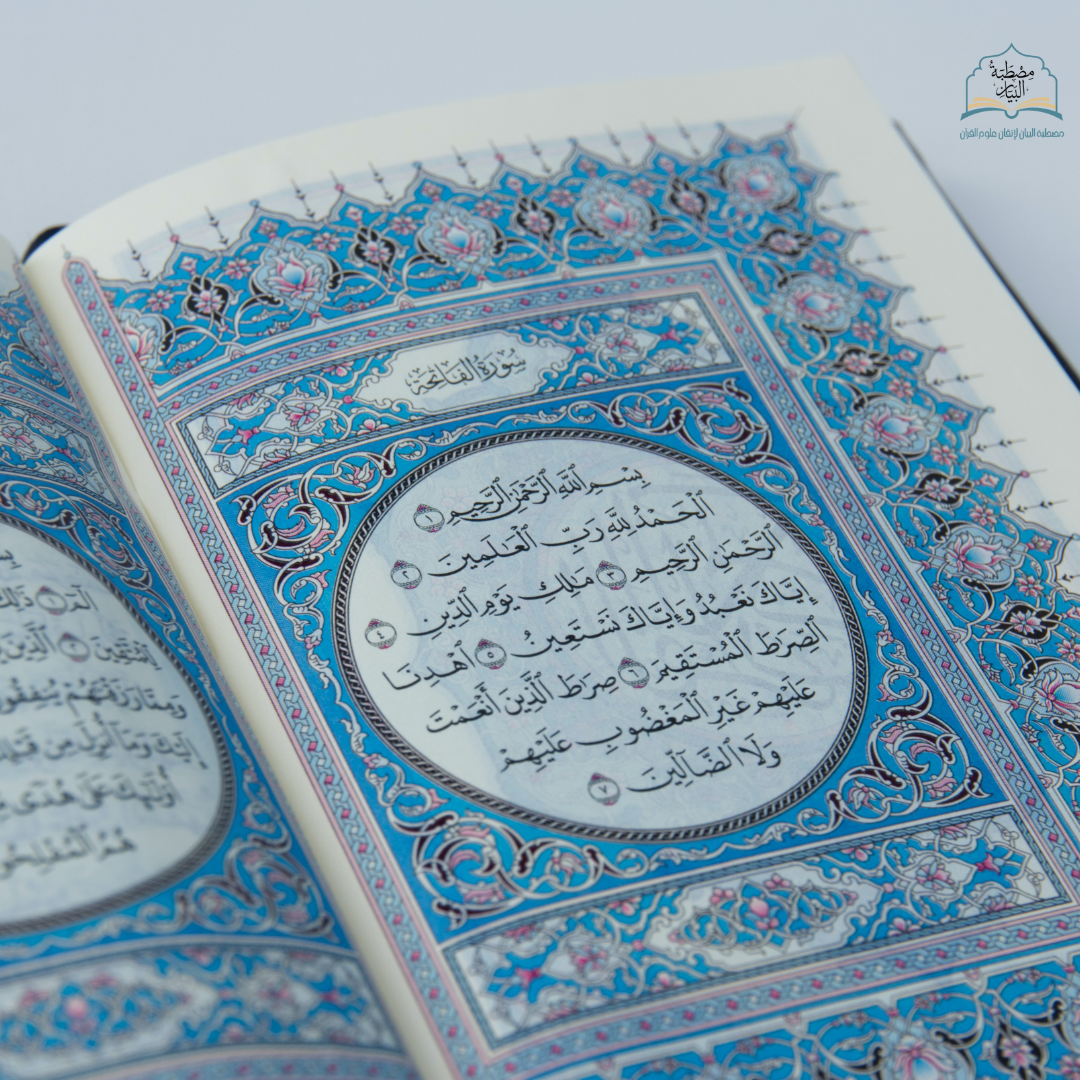 مصطبة
البيان
مصطبة البيان لإتقان علوم القرآن
سُورَةُ الفَاتِحَةِ
بِسْمِ ٱللَّهِ ٱلرَّحْمَٰنِ ٱلرَّحِيمِ ١
ٱلْحَمْدُ لِلَّهِ رَبِّ ٱلْعَٰلَمِينَ ٢
ٱلرَّحْمَٰنِ ٱلرَّحِيمِ ٣ مَٰلِكِ يَوْمِ ٱلدِّينِ ٤
إِيَّاكَ نَعْبُدُ وَإِيَّاكَ نَسْتَعِينُ ٥ ٱهْدِنَا
ٱلصِّرَٰطَ ٱلْمُسْتَقِيمَ ٦ صِرَٰطَ ٱلَّذِينَ أَنْعَمْتَ
عَلَيْهِمْ غَيْرِ ٱلْمَغْضُوبِ عَلَيْهِمْ
وَلَا ٱلضَّآلِّينَ ٧
الٓمٓ ١ ذَٰلِكَ
ٱلَّذِينَ
وَمِمَّا رَزَقْنَٰهُمْ يُنفِقُونَ
إِلَيْكَ وَمَآ أُنزِلَ مِن قَبْلِكَ
أُو۟لَٰٓئِكَ عَلَىٰ هُدًى
هُمُ ٱلْمُفْلِحُونَ